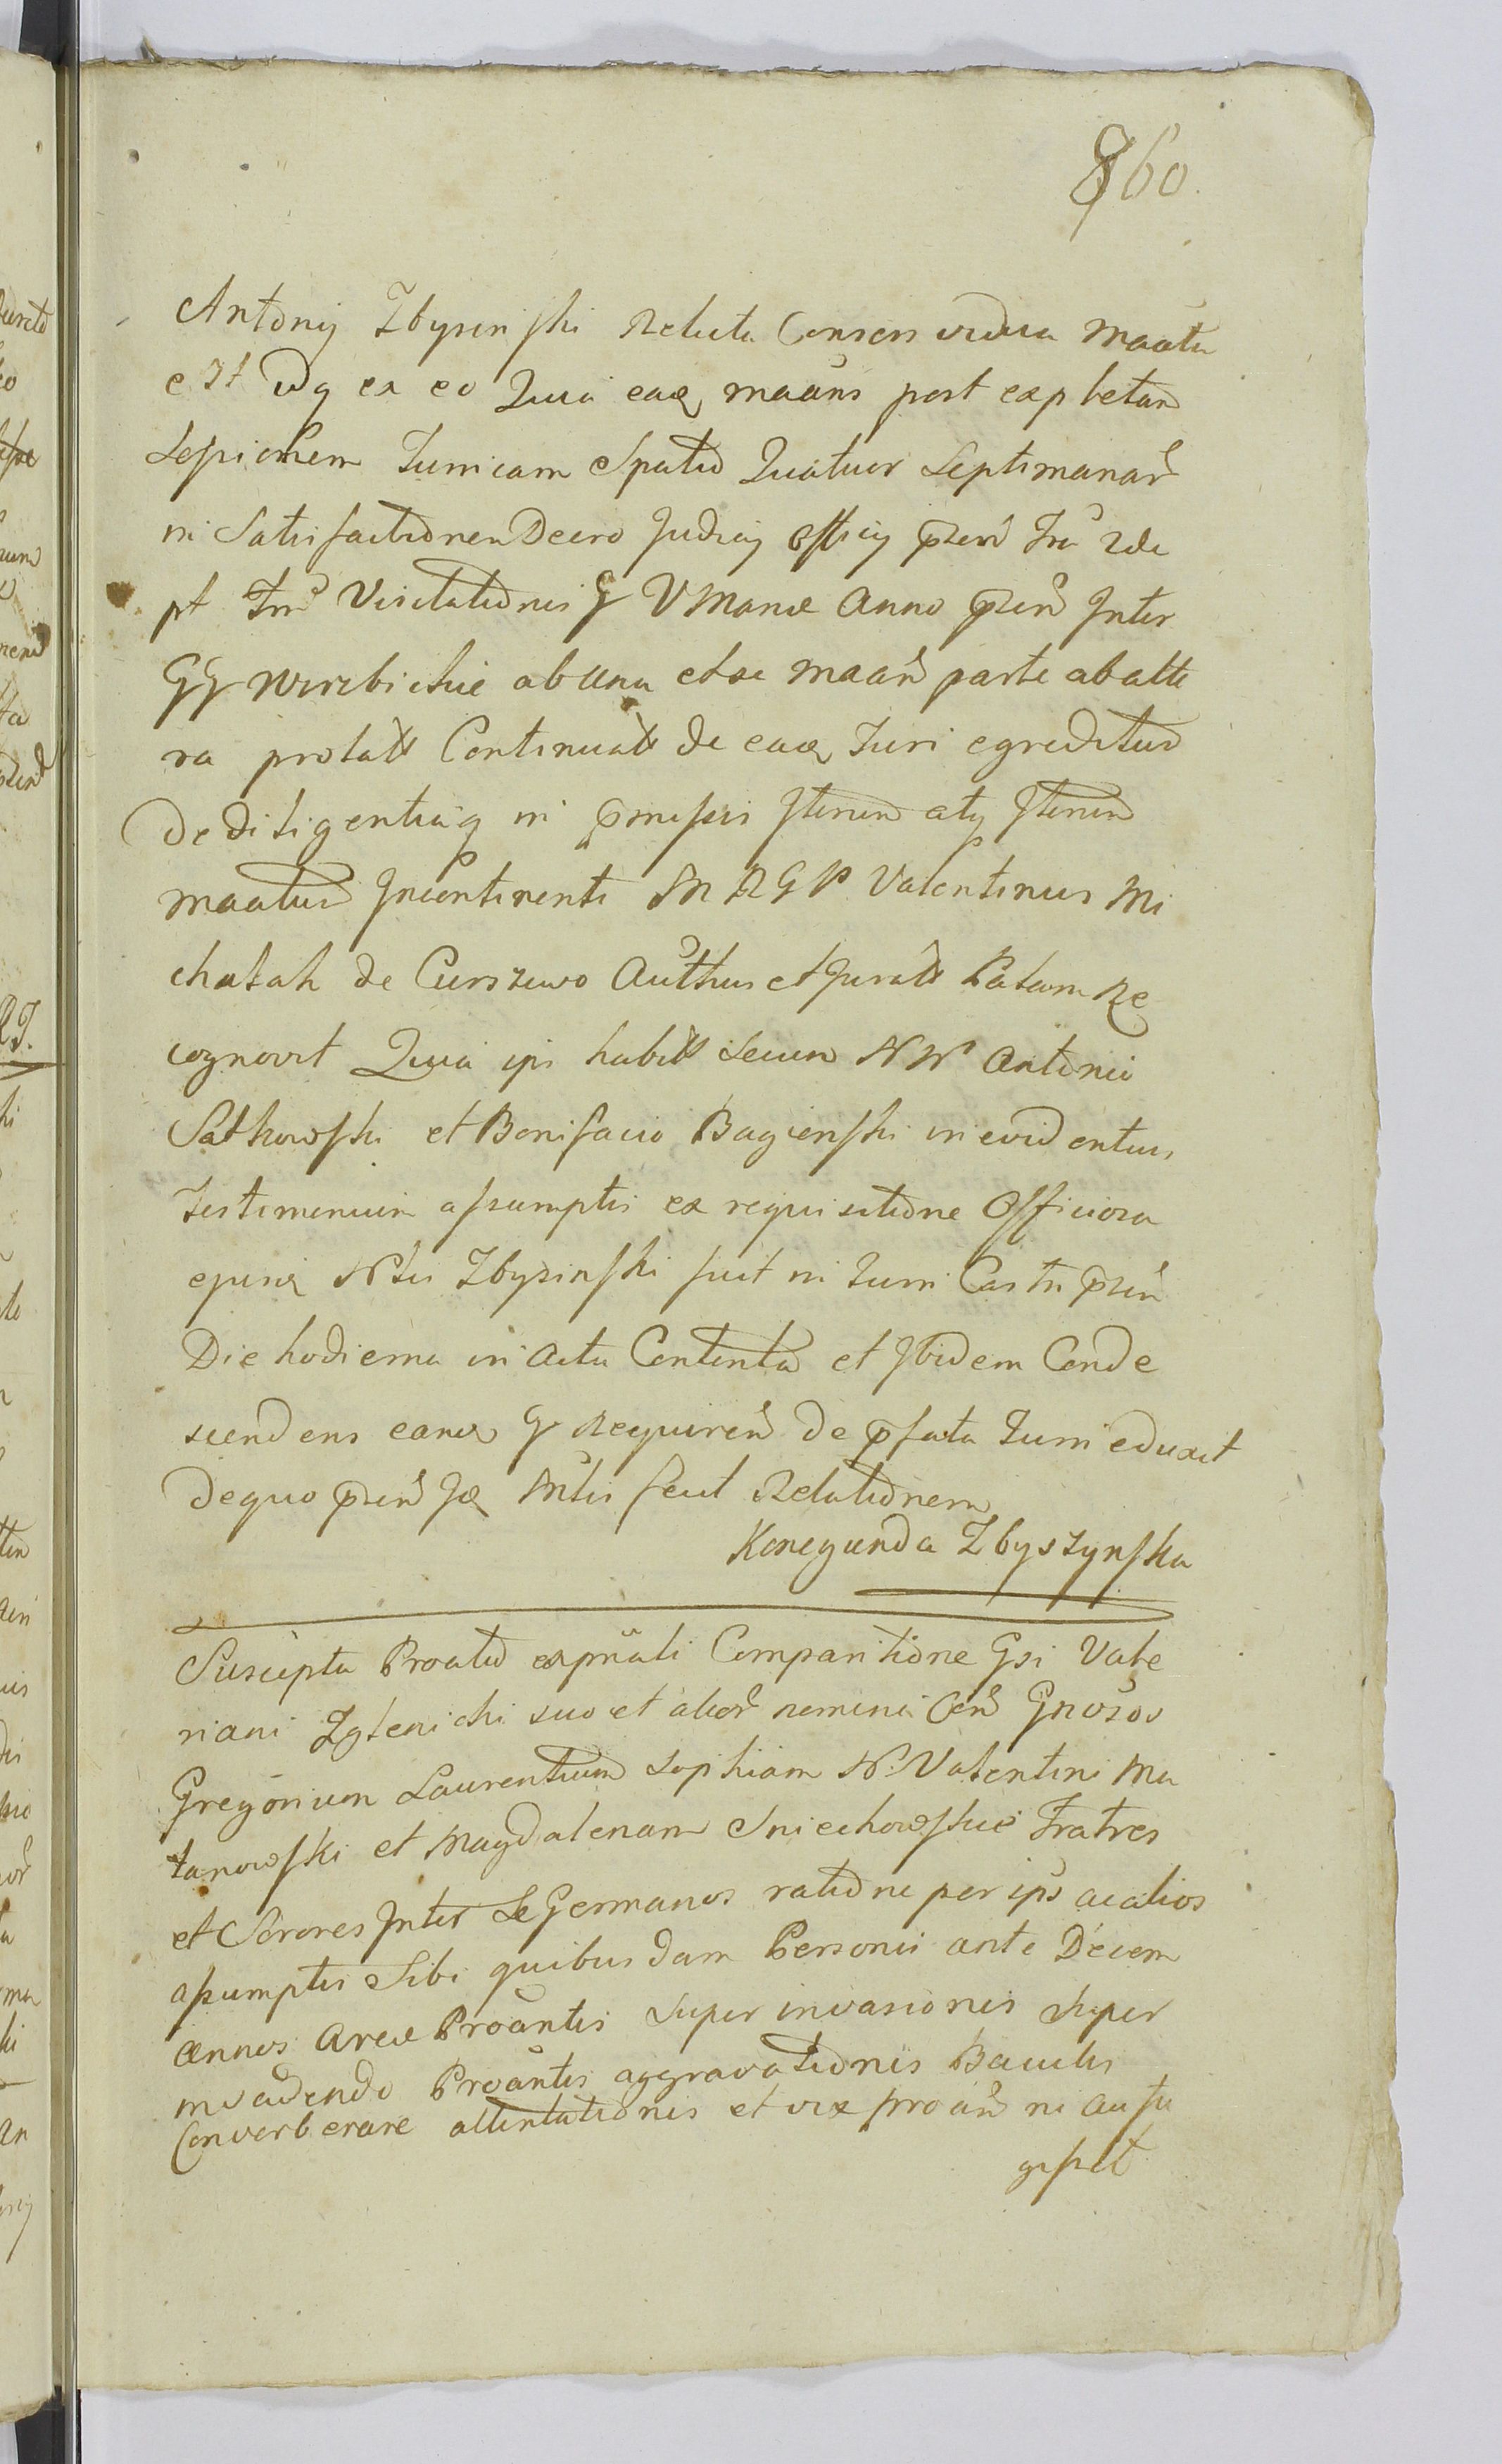 860.
Antonij Zbysinski Relicta Consors vidua maata
est idq ex eo Quia eaq maans post expletam
Sessionem Turricam Spatio Quatuor Septimanar
in Satisfactionem Decro Judicij Officij pzen
pt Visitationis G V Manae Anno pzen Inter
GG Wierzbickie ab una et maan parte ab alte
ra prolati Continuati de eaq Turri egreditur
De Diligentiaq in pmissis Iterum atq Iterum
maatur Incontinenti M R G P Valentinus Mi
chalak de Curszewo Autthus et Juratt Palam Re
cognovit Quia ips habitt secum NN Antonio
Satkowski et Bonifacio Bagienski in evidentius
Testimonium assumptis ex requisitione Officiosa
ejusq Nlis Zbysinski fuit in Turri Castri pzen
Die hodierna in Actu Contenta et Ibidem Conde
scendens eanq G Requiren de pfata Turri eduxit
de quo pzen Mlis fecit Relationem
Konegunda Zbyszynska
Suscepta Proatio expnali Comparitione Gsi Vale
riani Zglenicki suo et alior nomine Gnosos
Gregorium Laurentium Sophiam N. Valentini Ma
lanowski et Magdalenam Sniechowskie Fratres
et Sorores Inter Se Germanos ratione per ips ac alios
assumptis Sibi quibusdam Personis ante Decem
annos Areae Proantis super invasionis super
invadendo Proantis aggravationis Baculis
Converberare attentationis et vix proan ni aufu
gisset